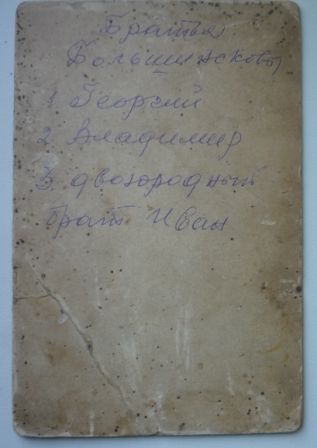 Братья
Большинсковы
1 Георгий
2 Владимир
3 двоюродный
брат Иван